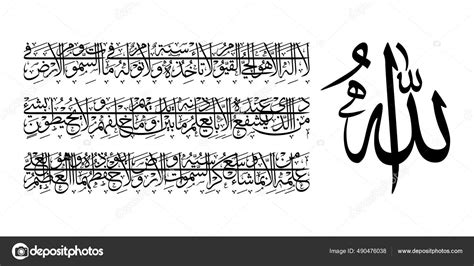 الله
لا إله إلا هو الحي القيوم لا تأخذه سنة ولا نوم له ما في السموات وما في الأرض
من ذا الذي يشفع عنده إلا بإذنه يعلم ما بين أيديهم وما خلفهم ولا يحيطون بشيء
من علمه إلا بما شاء وسع كرسيه السموات والأرض ولا يؤده حفظهما وهو العلي العظيم
depositphotos Image ID: 490476038 www.depositphotos.com